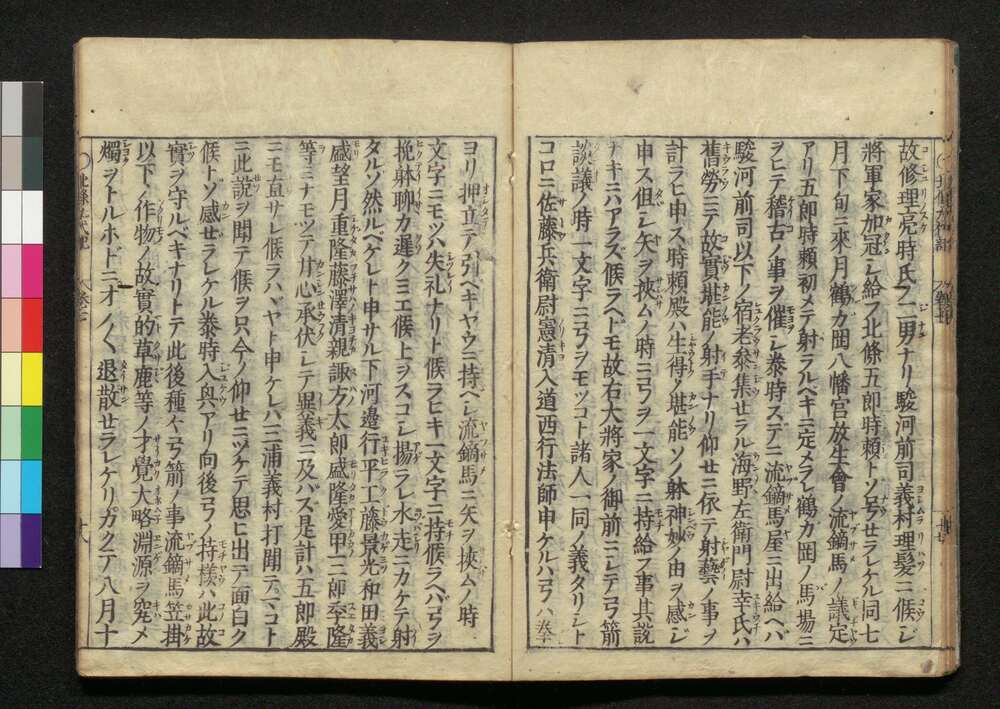 故修理亮時氏ノ二男ナリ駿河前司義村理髪ニ候ジ
將軍家加冠シ給フ北條五郎時頼トソ号セラレケル同七
月下旬ニ來月鶴カ岡八幡宮放生會ノ流鏑馬ノ議定
アリ五郎時頼初メテ射ラルベキニ定メラレ鶴カ岡ノ馬場ニ
ヲヒテ稽古ノ事ヲ催シ泰時スデニ流鏑馬屋ニ出給ヘバ
駿河前司以下ノ宿老參集セラル海野左衛門尉幸氏ハ
舊勞ニテ故實堪能ノ射手ナリ仰セニ依テ射藝ノ事ヲ
計ラヒ申ス時頼殿ハ生得ノ堪能ソノ躰神妙ノ由ヲ感ジ
申ス但シ矢ヲ挾ムノ時ニ弓ヲ一文字ニ持給フ事其説
ナキニハアラズ候ラヘドモ故右大將家ノ御前ニシテ弓箭
談議ノ時一文字ニ弓ヲモツコト諸人一同ノ義タリシト
コロニ佐藤兵衛尉憲清入道西行法師申ケルハ弓ハ拳
ヨリ押立テ引ヘキヤウニ持ヘシ流鏑馬ニ矢ヲ挾ムノ時
文字ニモツハ失礼ナリト候ラヒキ一文字ニ持候ラヘバ弓ヲ
挽躰聊カ遲クミエ候上ヲスコシ揚ラレ水走ニカケテ射
タルゾ然ルベケレト申サル下河邊行平工藤景光和田義
盛望月重隆藤澤清親諏方太郎盛隆愛甲三郎季隆
等ミナモツテ甘心承伏シテ異義ニ及バズ是計ハ五郎殿
ニモ直サレ候ラハヾヤト申ケレハ三浦義村打聞テ
ニ此説ヲ聞テ候ヲ只今ノ仰セニツケテ思ヒ出テ面白ク
候トゾ感セラレケル泰時入興アリ向後弓ノ持樣ハ此故
實ヲ守ルベキナリトテ此後種々弓箭ノ事流鏑馬笠掛
以下ノ作物ノ故實的草鹿等ノ才覺大略淵源ヲ究メ
燭ヲトルホドニオノ〱退散セラレケリカクテ八月十